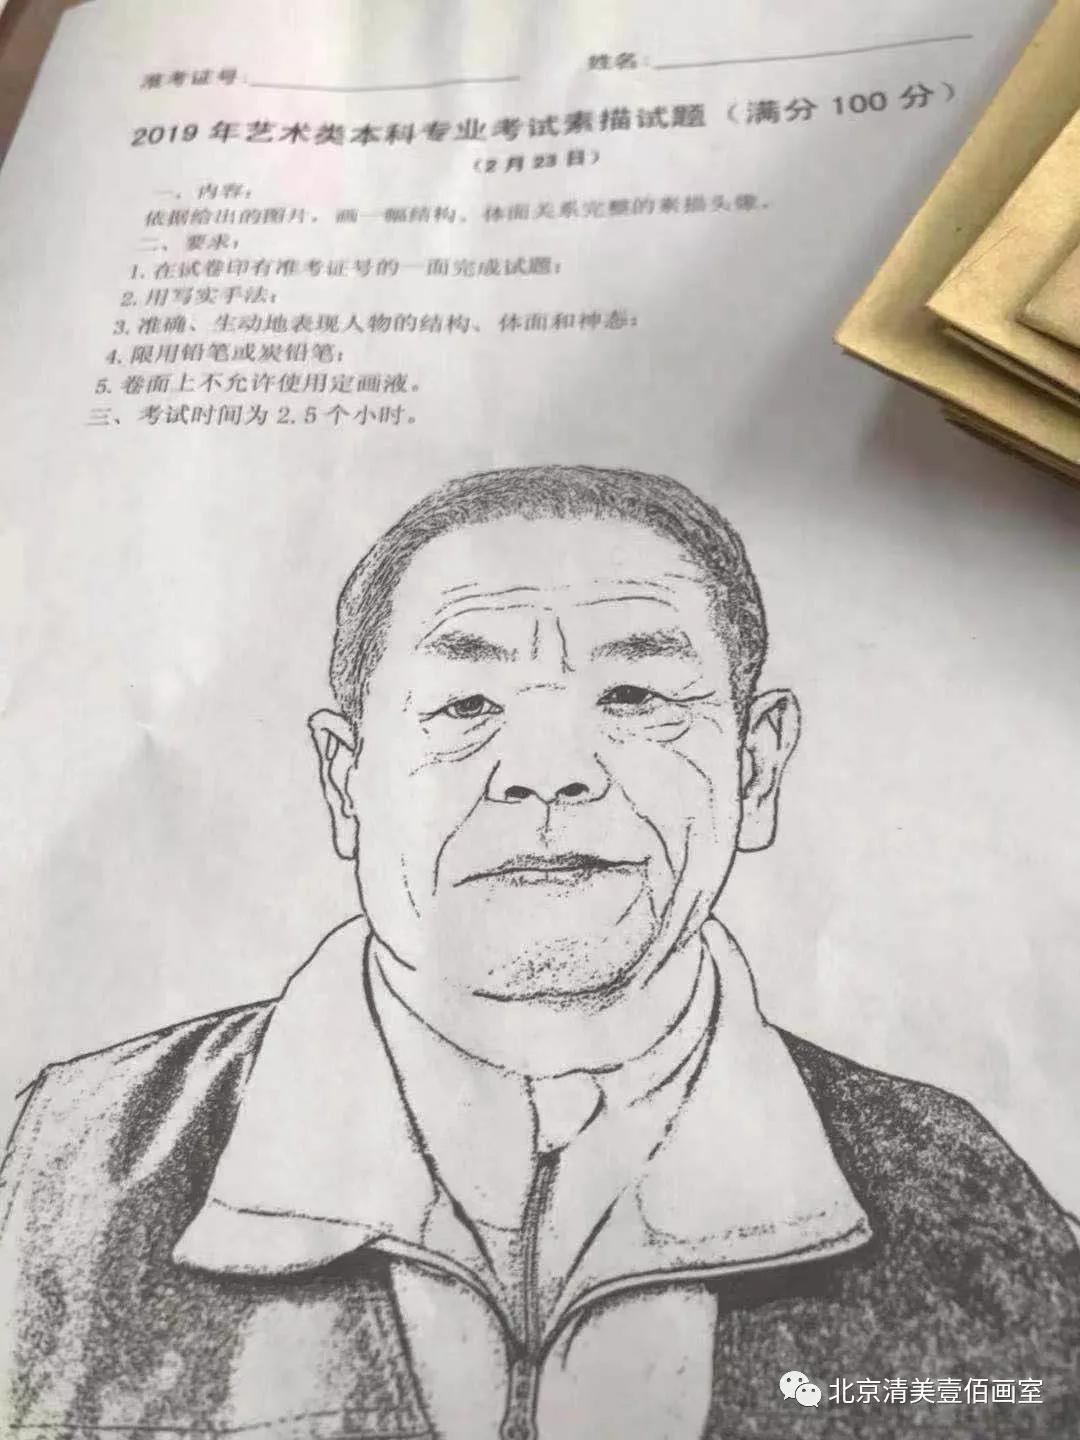 准考证号:
姓名:
2019 年艺术类本科专业考试素描试题（满分 100 分）
（2 月 23 日）
一、内容：
依据给出的图片，画一幅结构、体面关系完整的素描头像。
二、要求：
1. 在试卷印有准考证号的一面完成试题；
2. 用写实手法；
3. 准确、生动地表现人物的结构、体面和神态；
4. 限用铅笔或炭铅笔；
5. 卷面上不允许使用定画液。
三、考试时间为 2.5 个小时。
北京清美壹佰画室